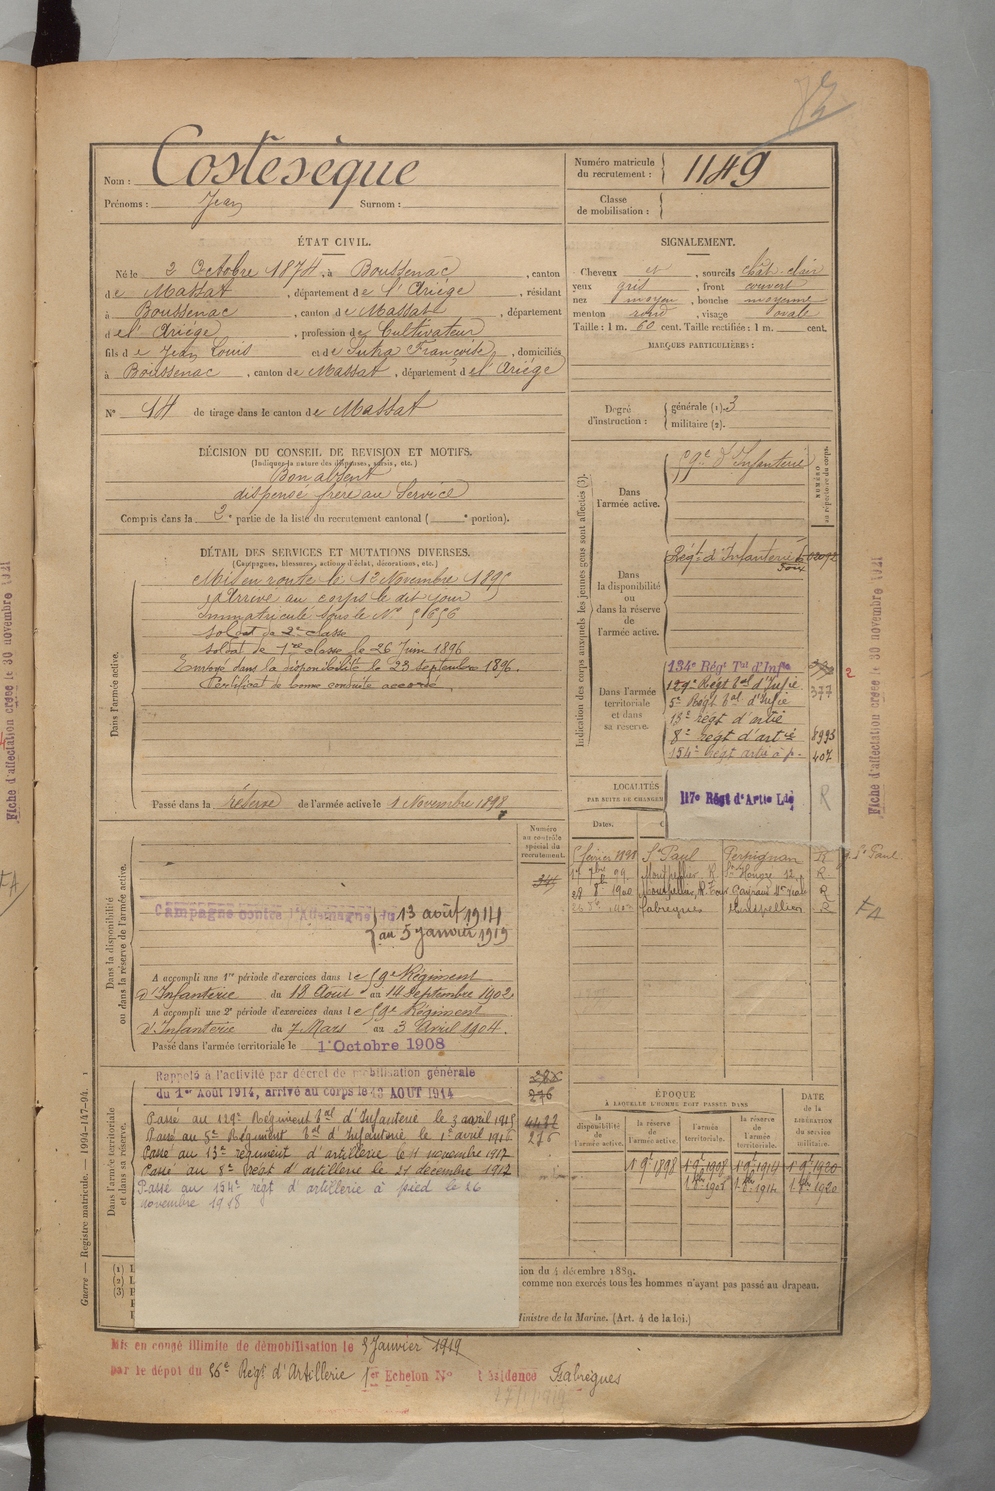 Nom : Costesèque
Prénoms : Jean Surnom :
Numéro matricule du recrutement : 1149
Classe de mobilisation :
ÉTAT CIVIL.
Né le 2 Octobre 1874, à Boussenac, canton
de Massat, département de l'Ariège, résidant
à Boussenac, canton de Massat, département
de l'Ariège, profession de Cultivateur
fils de Jean Louis et de Françoise, domiciliés
à Boussenac, canton de Massat, département de l'Ariège
N° 14 de tirage dans le canton de Massat
SIGNALEMENT.
Cheveux et, sourcils chât-clair
yeux gris, front couvert
nez moyen, bouche moyenne
menton rond, visage ovale
Taille : 1 m. 60 cent. Taille rectifiée : 1 m. cent.
MARQUES PARTICULIÈRES :
Degré d'instruction : générale (1). 3
militaire (2).
DÉCISION DU CONSEIL DE REVISION ET MOTIFS.
(Indiquer la nature des dispenses, sursis, etc.)
Bon absent
dispensé frère au Service
Compris dans la 2e partie de la liste du recrutement cantonal ( e portion).
DÉTAIL DES SERVICES ET MUTATIONS DIVERSES.
(Campagnes, blessures, actions d'éclat, décorations, etc.)
Dans l'armée active.
Mis en route le 13 Novembre 1895
Arrivé au corps le dit jour
Immatriculé sous le N°
Soldat de 2e classe
Soldat de 1re classe le 26 Juin 1896
Envoyé dans la disponibilité le 23 septembre 1896.
Certificat de bonne conduite accordé.
Passé dans la réserve de l'armée active le 1 Novembre 1898
Indication des corps auxquels les jeunes gens sont affectés (3).
NUMÉRO au répertoire du corps.
Dans l'armée active.
59e d'Infanterie
Dans la disponibilité ou dans la réserve de l'armée active.
Régt d'Infanterie de Foix
Dans l'armée territoriale et dans sa réserve.
134e Régt Tal d'Infie
129e Régt tal d'Infie 377
5e Régt tal d'Infie
13e régt d'artie
8e régt d'artie 8995
154e Régt artie à p. 407
117e Régt d'Artie Lde R
LOCALITÉS
PAR SUITE DE CHANGEM
Dates.
février 1898 St Paul Perpignan R
Montpellier R.
28 8 1902 Montpellier, R.
Fabrègues Montpellier R
St Paul
FA
Numéro au contrôle spécial du recrutement.
Dans la disponibilité ou dans la réserve de l'armée active.
Campagne contre l'Allemagne du 13 août 1914
au 5 janvier 1919
A accompli une 1re période d'exercices dans le 59e Régiment
d'Infanterie du 18 Août au 14 Septembre 1902.
A accompli une 2e période d'exercices dans le 59e Régiment
d'Infanterie du 7 Mars au 3 Avril 1904.
Passé dans l'armée territoriale le 1 Octobre 1908
Dans l'armée territoriale et dans sa réserve.
Rappelé à l'activité par décret de mobilisation générale
du 1er Août 1914, arrivé au corps le 13 AOUT 1914
276
Passé au 129e Régiment tal d'Infanterie le 3 avril 1915
Passé au 5e Régiment tal d'Infanterie le 1er avril 1916
276
Passé au 13e régiment d'artillerie le 11 novembre 1917
Passé au 8e Régt d'artillerie le 21 decembre 1917
Passé au 154e régt d'artillerie à pied le 16
novembre 1918
ÉPOQUE
À LAQUELLE L'HOMME DOIT PASSER DANS
la disponibilité de l'armée active.
la réserve de l'armée active.
l'armée territoriale.
la réserve de l'armée territoriale.
DATE de la LIBÉRATION du service militaire.
1 9e 1898 1 9e 1908 1 9e 1914 1 9e 1920
1 8e 1908 1 8e 1914 1 8e 1920
(1)
(2)
(3)
ion du 4 décembre 1889.
comme non exercés tous les hommes n'ayant pas passé au Drapeau.
Ministre de la Marine. (Art. 4 de la loi.)
Guerre — Registre matricule. — 1994-147-94.
Mis en congé illimité de démobilisation le 5 Janvier 1919
par le dépôt du 56e Régt d'Artillerie 1er Echelon N° Résidence Fabrègues
Fiche d'affectation créée le 30 novembre 1921
Fiche d'affectation créée le 30 novembre 1921
FA